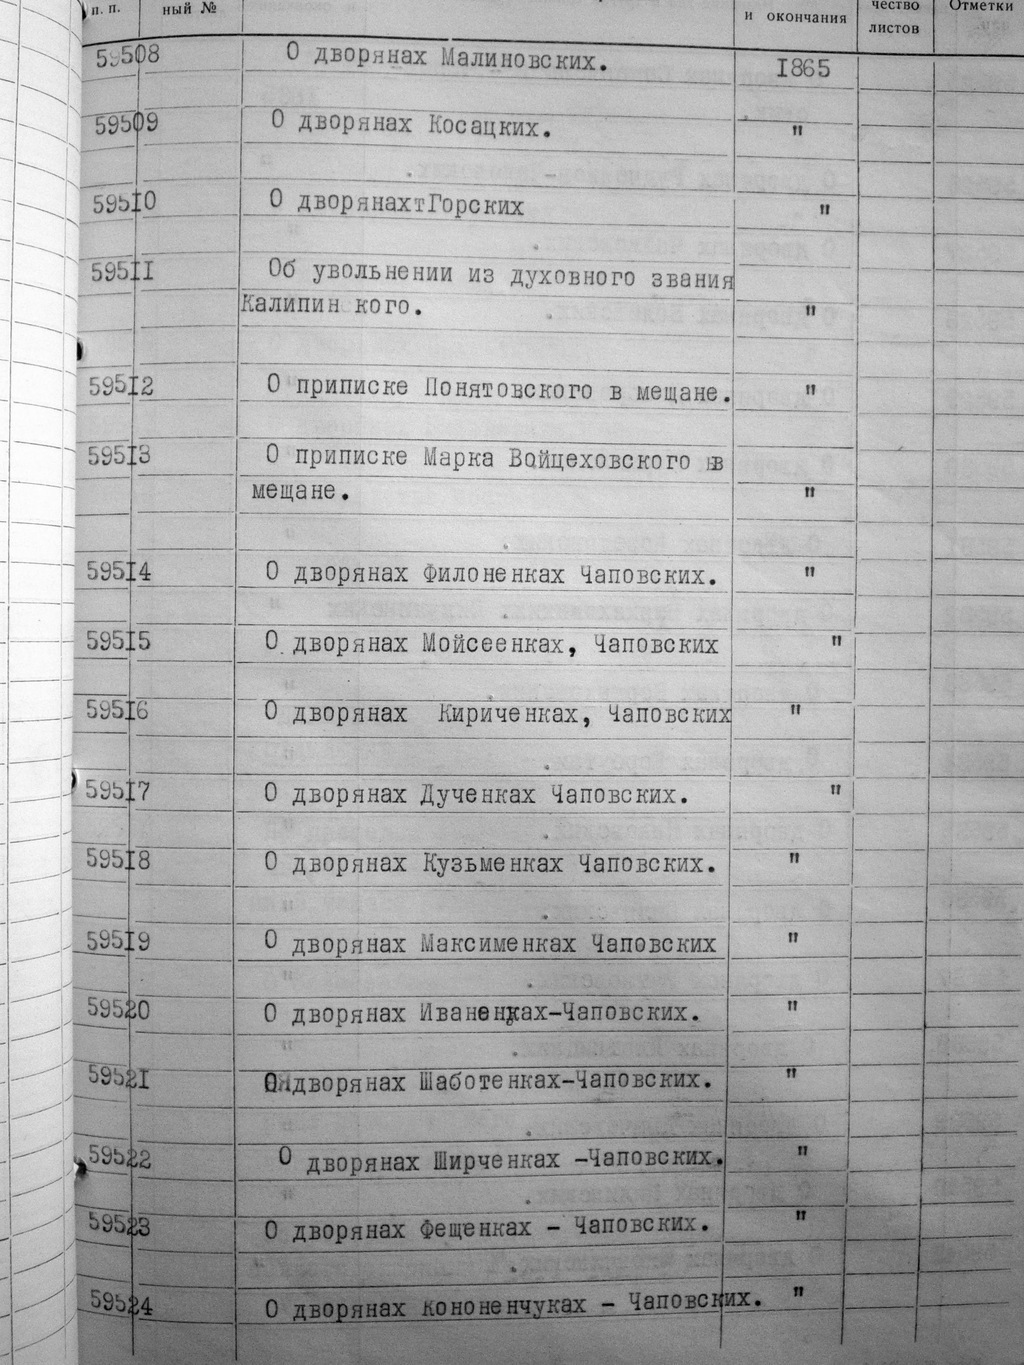 п. п. ный № и окончания чество листов Отметки
59508 О дворянах Малиновских. 1865
59509 О дворянах Косацких. "
59510 О дворянахтГорских "
59511 Об увольнении из духовного звания
Калипин кого. "
59512 О приписке Понятовского в мещане. "
59513 О приписке Марка Войцеховского в
мещане. "
59514 О дворянах Филоненках Чаповских. "
59515 О дворянах Мойсеенках, Чаповских "
59516 О дворянах Кириченках, Чаповских "
59517 О дворянах Дученках Чаповских. "
59518 О дворянах Кузьменках Чаповских. "
59519 О дворянах Максименках Чаповских "
59520 О дворянах Иваненках-Чаповских. "
59521 О дворянах Шаботенках-Чаповских. "
59522 О дворянах Ширченках -Чаповских. "
59523 О дворянах Фещенках - Чаповских. "
59524 О дворянах Кононенчуках - Чаповских. "